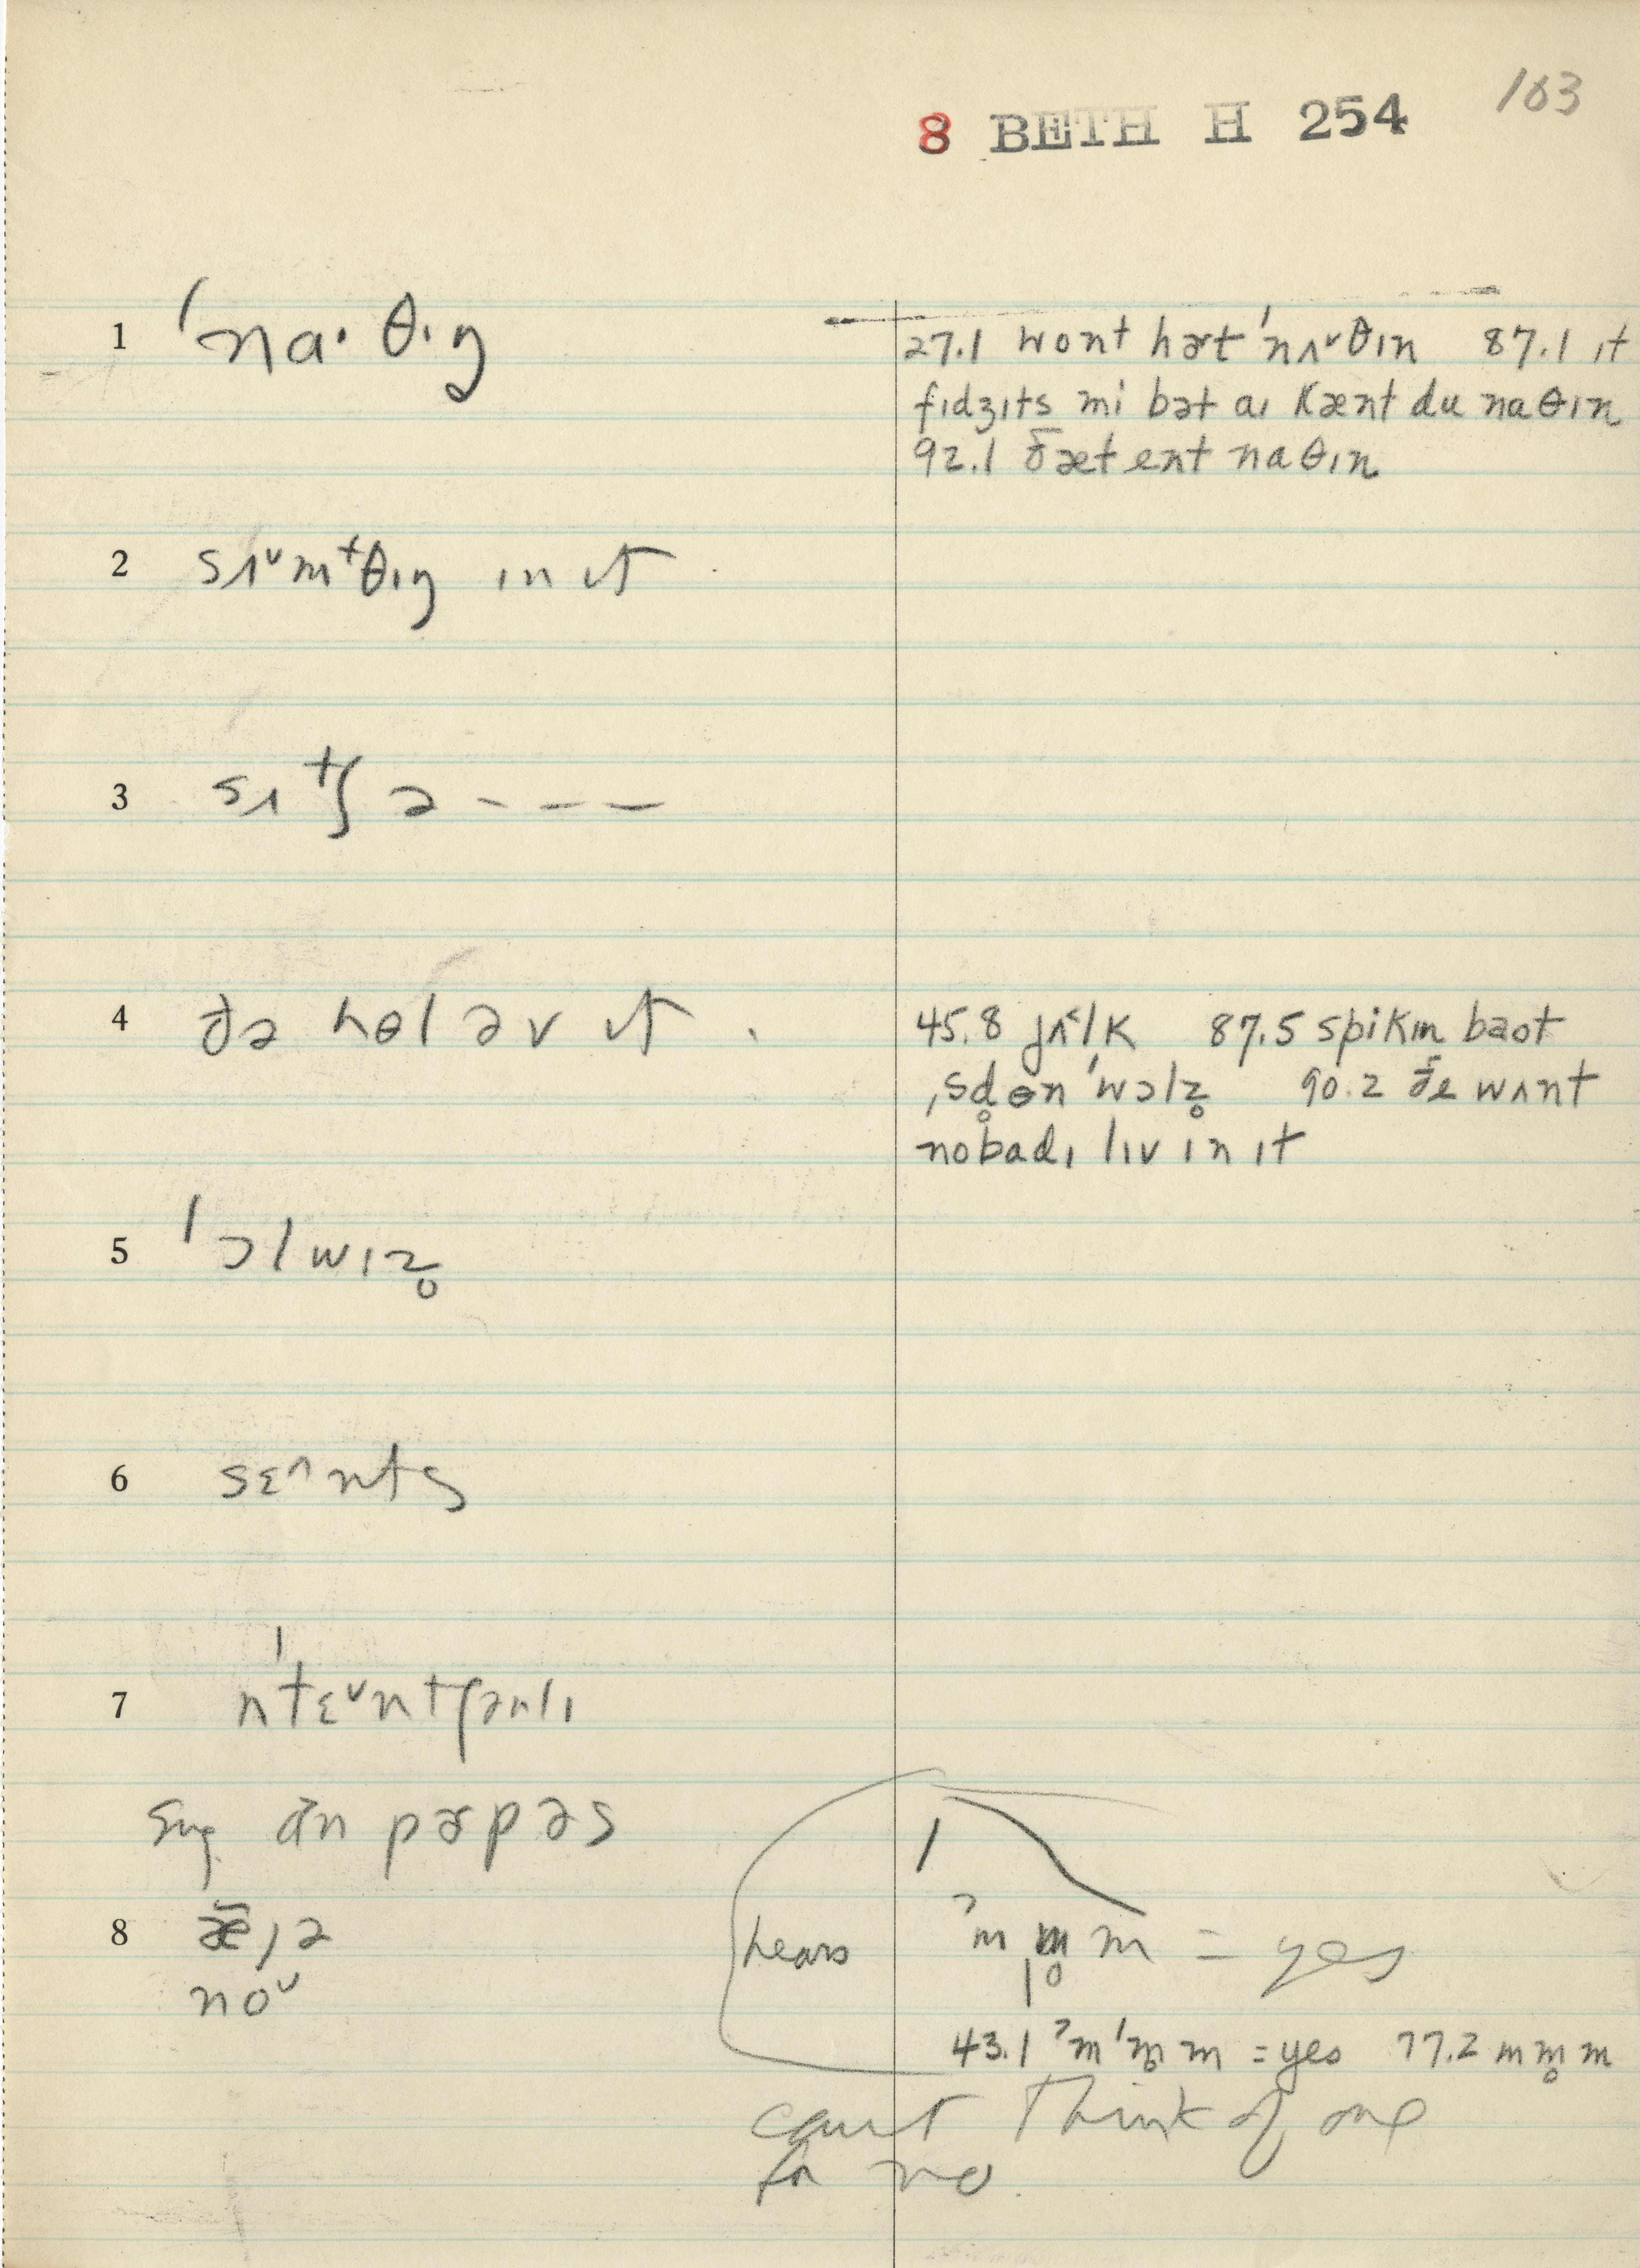 103
8 BETH H 254
1 ˈna· θɪŋ
27.1 wont hɚt ˈnʌ˅θɪn 87.1 ɪt
fɪdʒɪts mi bət aɪ kænt du naθɪn
92.1 ðæt ent naθɪn
2 sʌ˅m⁺θɪŋ ɪn ɪt
3 sʌtʃ ə - - - -
4 ðə hɵl əv ɪt
45.8 jʌ˂lk 87.5 spikɪn baɵt
ˌsd̥ɵn ˈwɔlz̥ 90.2 ðe wʌnt
nobadɪ lɪv ɪn ɪt
5 ˈɔlwɪz̥
6 sɛ˄nts
7 nˈtɛ˅ntʃənlɪ
sug. ɑn pɚpəs
8
no˅
hears ˀm m̥ m = yes
43.1 ˀmˈm̥ m = yes 77.2 m m̥ m
can't think of one
for no